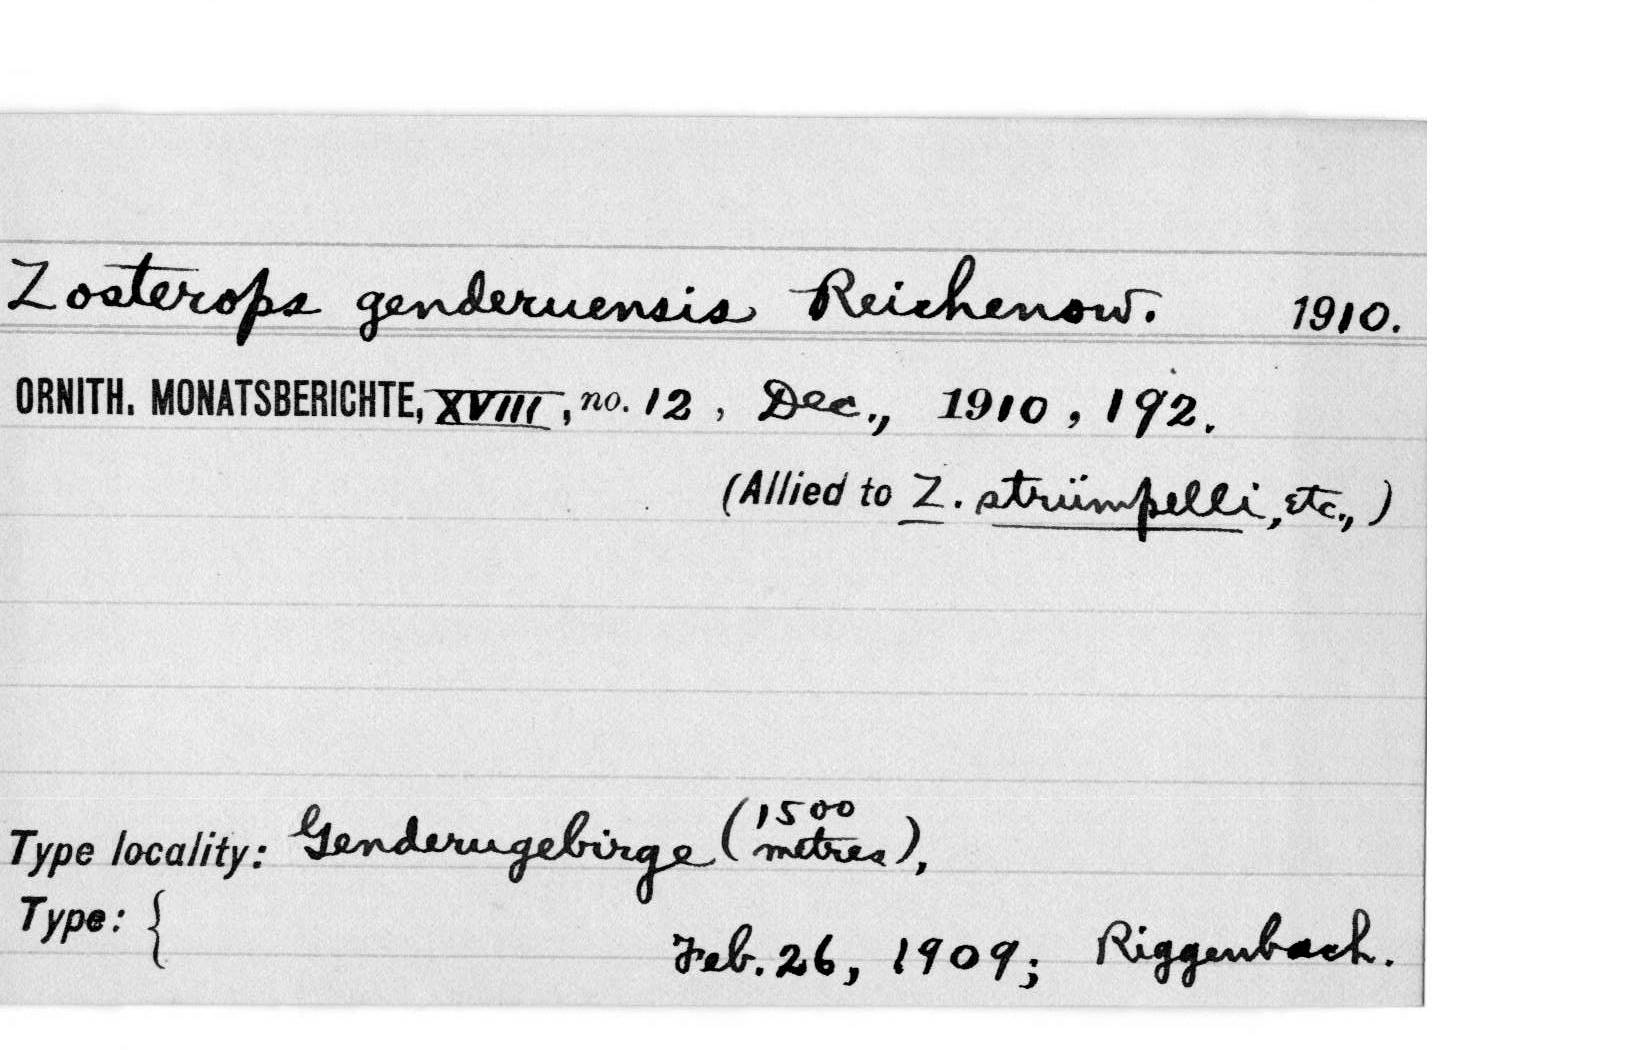 Zosterops genderuensis Reichenow. 1910.
ORNITH. MONATSBERICHTE, XVIII, no. 12, Dec., 1910, 192.
(Allied to Z. strümpelli, etc.,)
Type locality: Genderugebirge (1500 metres),
Type: {
Feb. 26, 1909; Riggenbach.